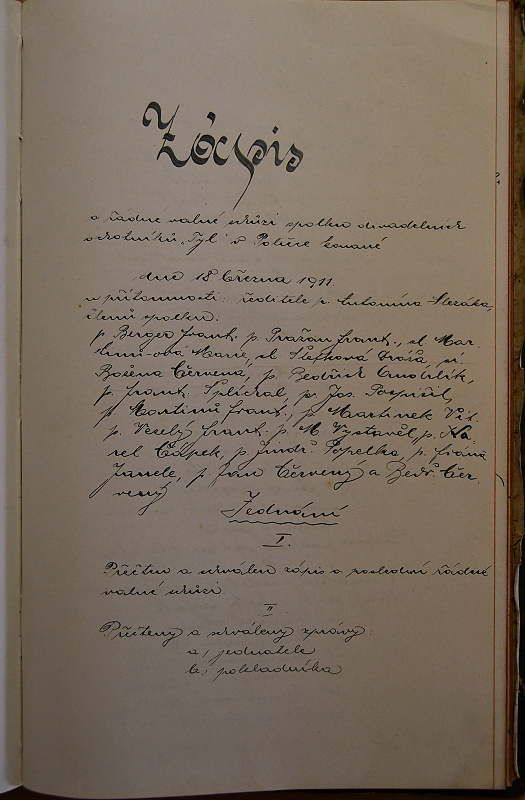 Zápis
o řádné valné schůzi spolku divadelních
ochotníků „Tyl" v Poličce konané
dne 18 března 1911.
u přítomnosti: ředitele p. Antonína Slezáka,
členů spolku:
p. Berger Frant. p. Pražan Frant., sl. Mar-
Marie, sl. Štefková, sl.
Božena Červená, p. Bedřich
p. Frant. Šplíchal, p. Jos. Pospíšil,
p. Martinů Frant., p. Martinek Vít.
p. Veselý Frant. p. M. Vystavěl, p. Ka-
rel Čapek, p. Jindř. Popelka, p.
p. Jan Červený a Bedř. Čer-
vený
Jednání
I.
Přečten a schválen zápis o poslední řádné
valné schůzi.
II
Přečteny a schváleny zprávy:
a, jednatele
b, pokladníka